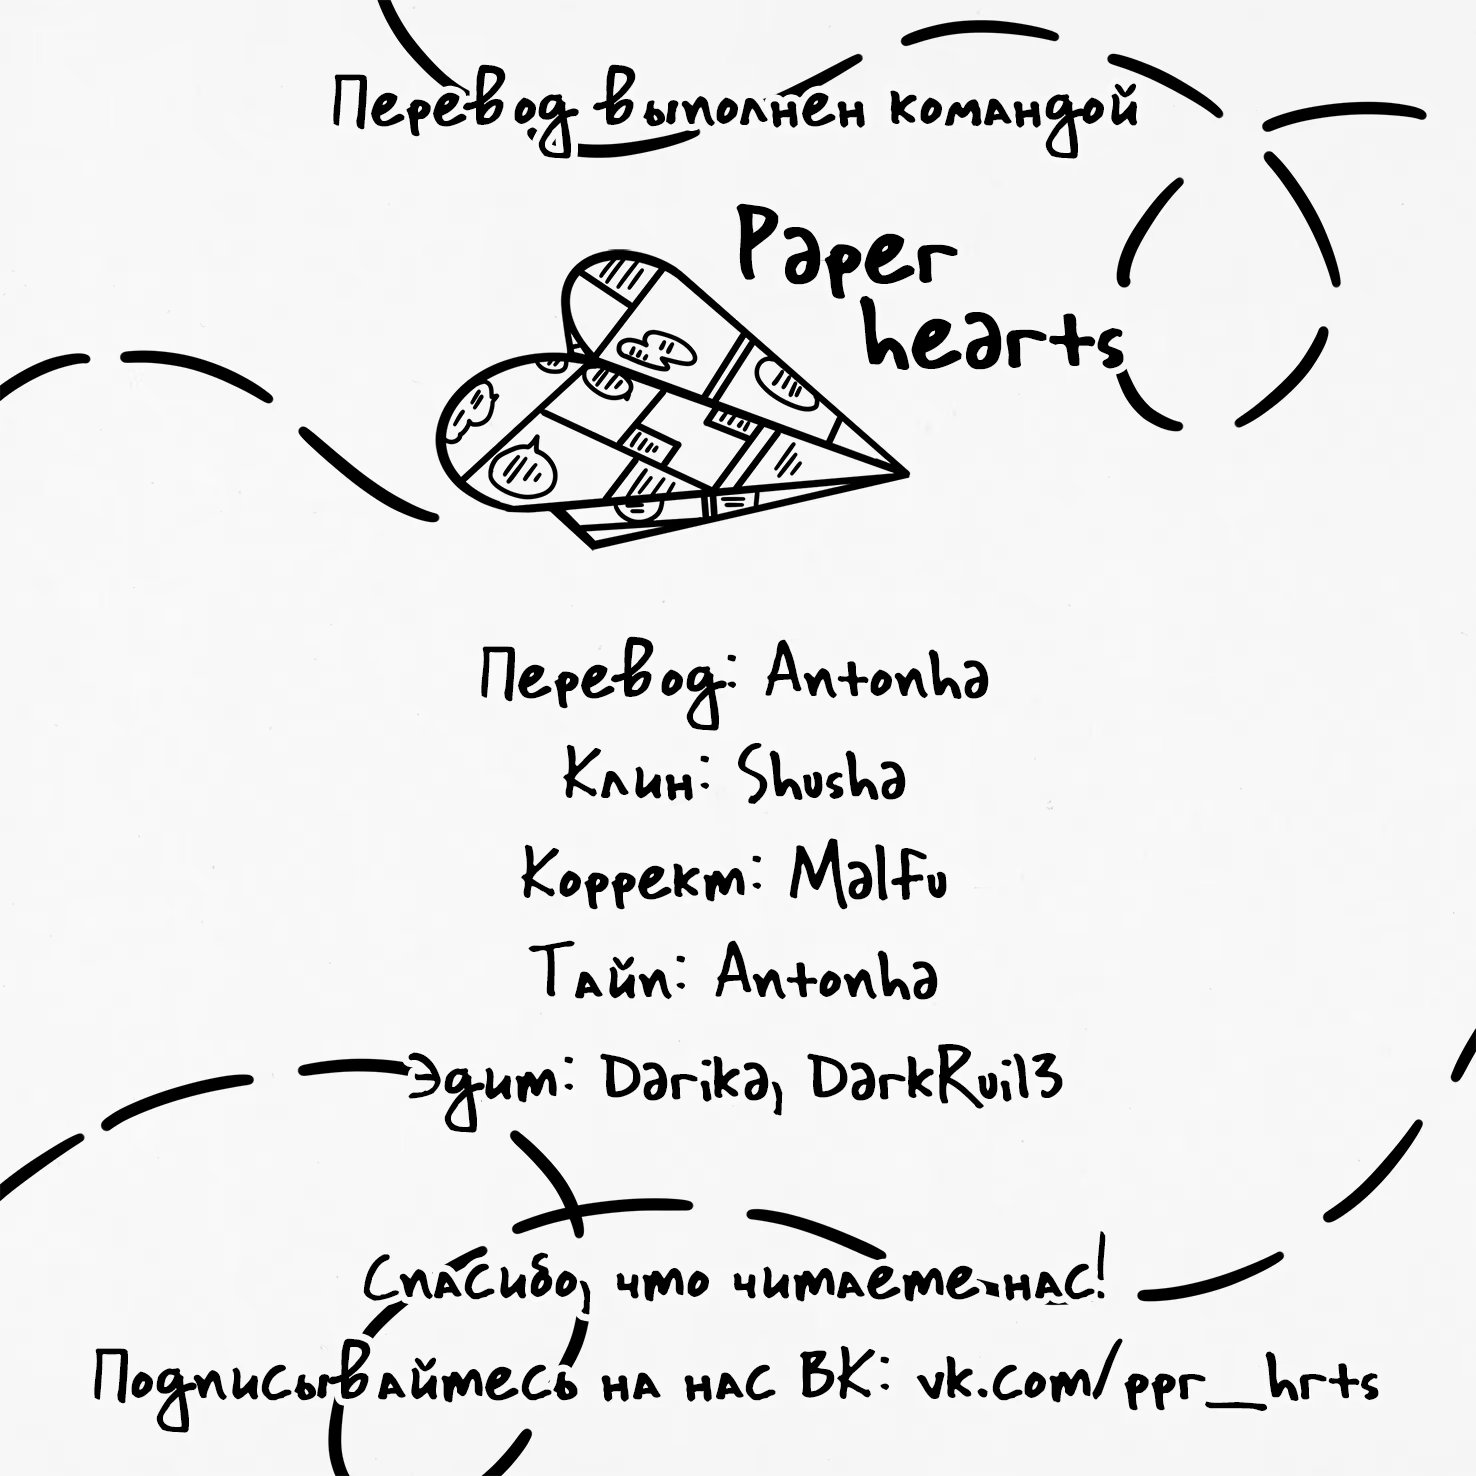 Перевод выполнен командой
Paper
hearts
Перевод: Antonha
Клин: Shusha
Коррект: Malfu
Тайп: Antonha
Эдит: Darika, DarkRui13
Спасибо, что читаете нас!
Подписывайтесь на нас ВК: vk.com/ppr__hrts